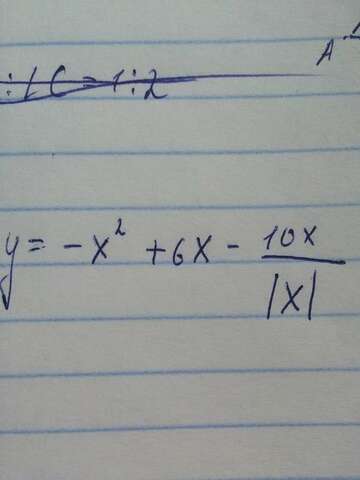 A
: LC = 1:2
y = -x² + 6x - 10x/|x|